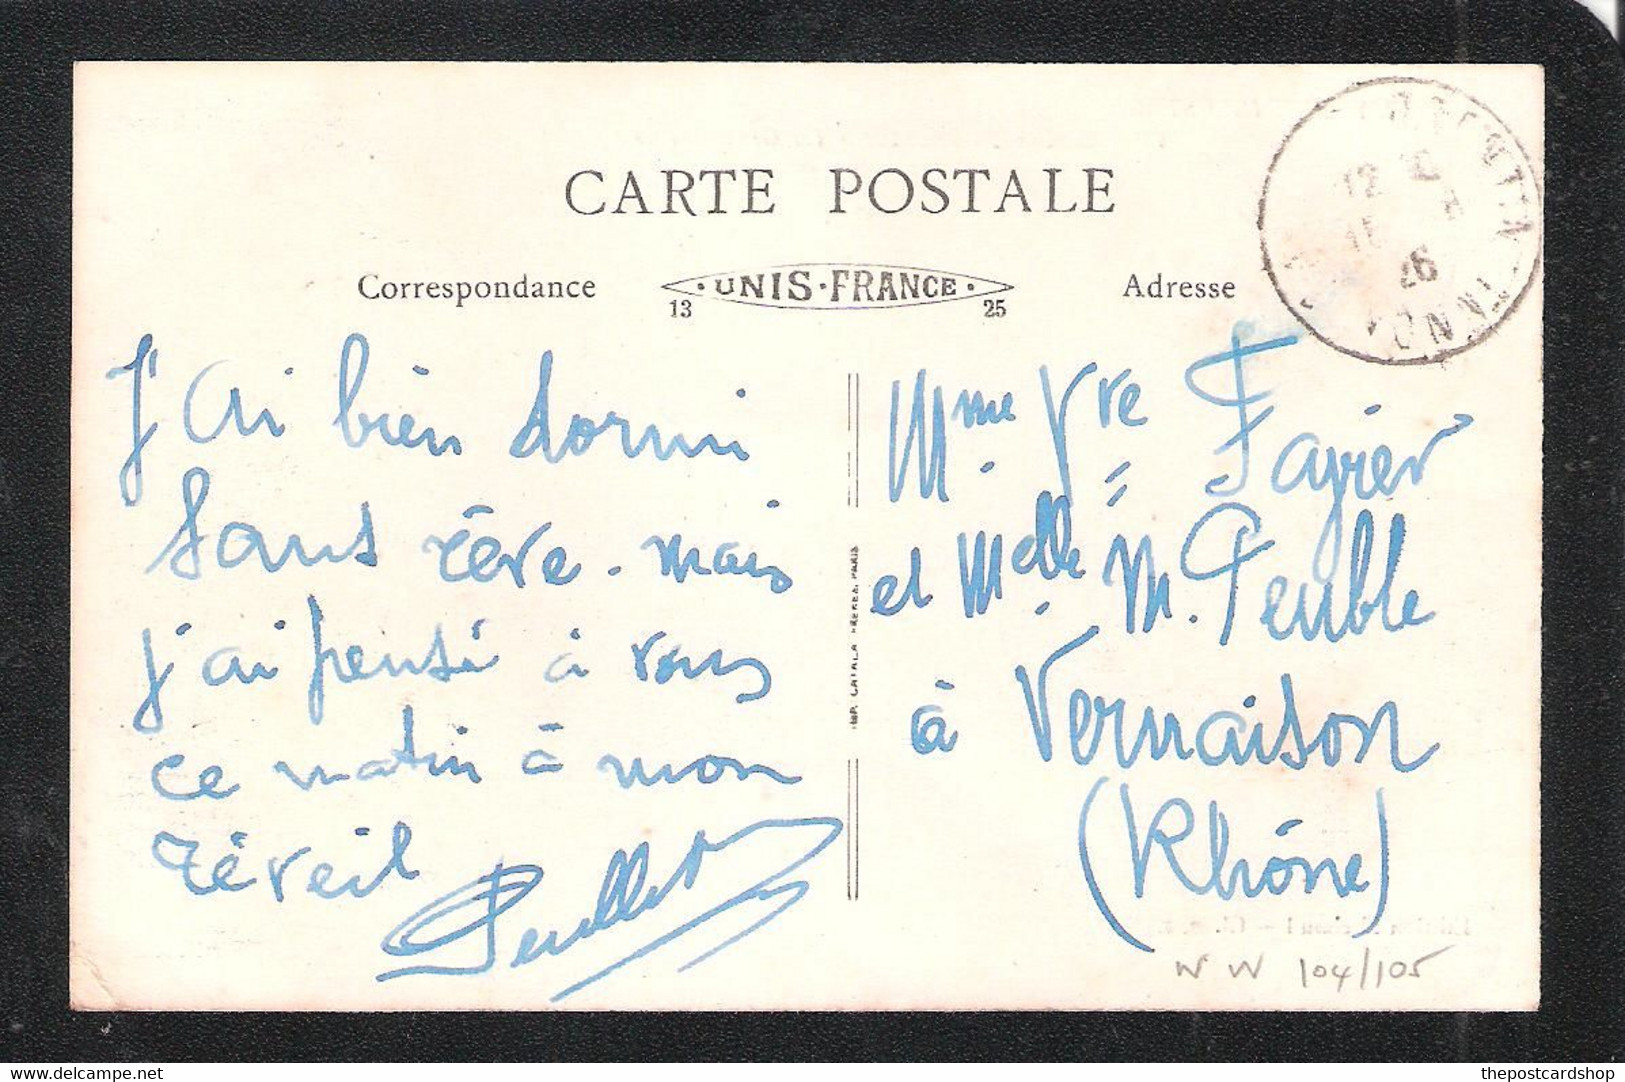 CARTE POSTALE
Correspondance
UNIS-FRANCE
13
25
Adresse
J'ai bien dormi
sans rêve. mais
j'ai pensé à vous
ce matin à mon
réveil
IMP. CATALA FRÈRES, PARIS
Mme Vve Fayier
et Melle M. Peuble
à Vernaison
(Rhône)
12
15
26
W W 104/105
delcampe.net
thepostcardshop